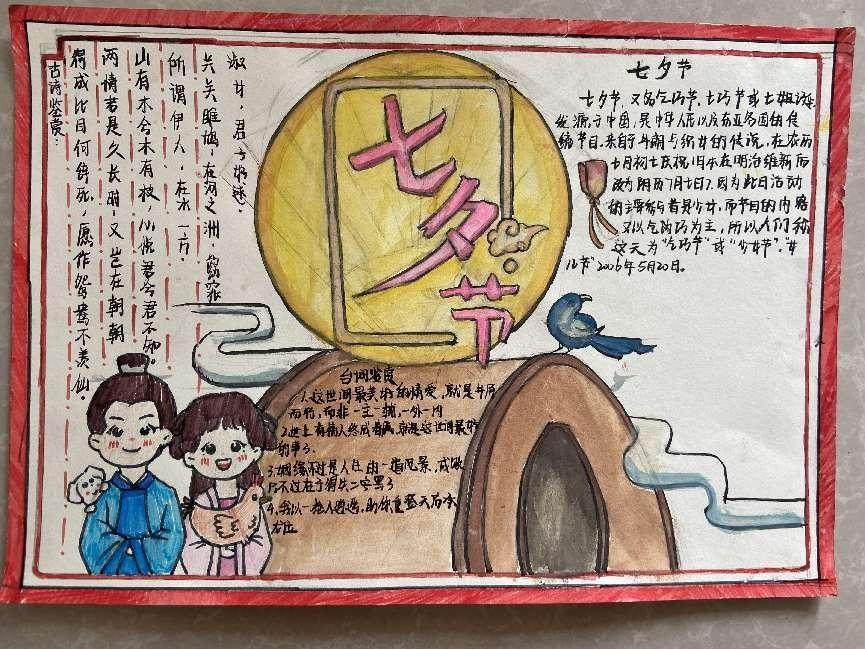 古诗鉴赏:
得成比目何辞死,愿作鸳鸯不羡仙。
两情若是久长时,又岂在朝朝
山有木兮木有枝,心悦君兮君不知。
所谓伊人,在水一方
关关雎鸠,在河之洲,窈窕
淑女,君子好逑。
七夕节
七夕节
七夕节,又名乞巧节、七巧节或七姐诞,
发源于中国,是中华人民以及东亚各国的传
统节日,来自于牛郎与织女的传说,在农历
七月初七庆祝,日本在明治维新后
改为阳历7月七日,因为此日活动
的主要参与者是少女,而节日的内容
又以乞巧为主,所以人们称
这天为"乞巧节"或"少女节",女
儿节"2006年5月20日。
台词鉴赏
1.这世间最美好的情爱,就是并肩
而行,而非一主一辅,一外一内
2.世上有情人终成眷属,就是这世间最好
的事了.
3.姻缘不过是人生的一抹风景,成败
不过在于得失二字罢了
4.我以一抬人